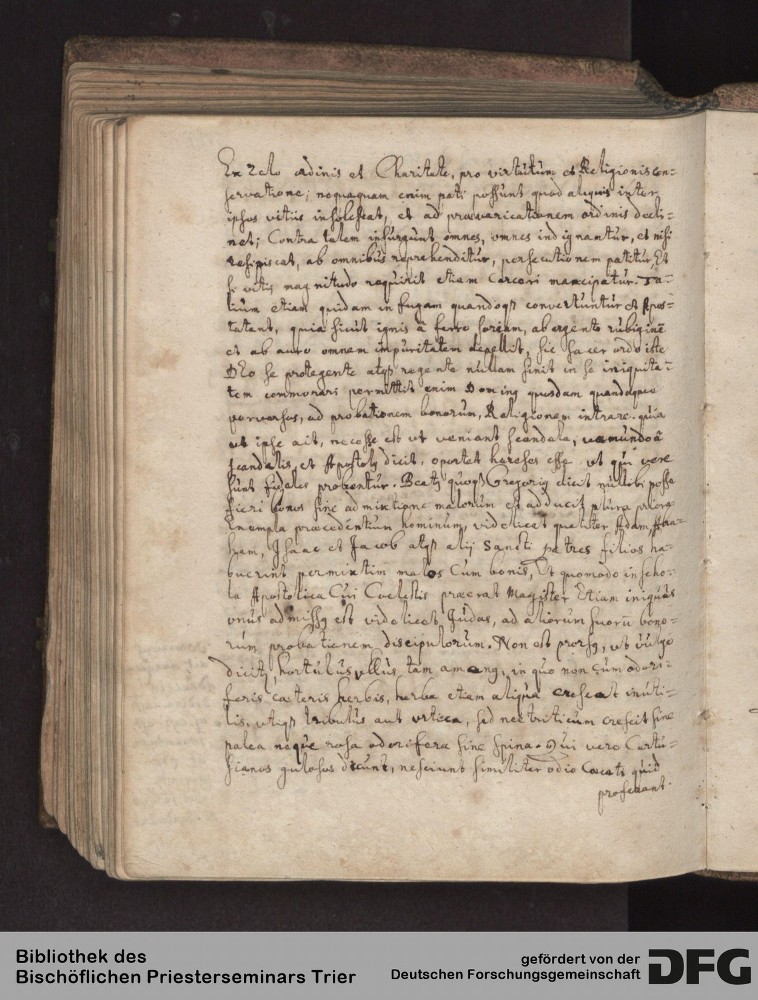 Ex Zelo ordinis et Charitate, pro virtutum et Religionis con=
servatione; nequaquam enim pati possunt quod aliquis inter
ipsos vitiis insolescat, et ad praevaricationem ordinis decli=
net; Contra talem insurgunt omnes, omnes indignantur, et nisi
resipiscat, ab omnibus reprehenditur, persecutionem patitur, Et
si vitij magnitudo requirit etiam Carceri mancipatur. Ta=
lium etiam quidam in fugam quandoqz convertuntur et Apos=
tatant, quia sicut ignis â ferro scoriam, ab argento rubiginē
et ab auro omnem impuritatem depellit, sic sacer ordo iste
DEO se protegente atqz regente nullam sinit in se iniquita=
tem commorari permittit enim Domin9 quosdam quandoque
perversos, ad probationem bonorum, Religionem intrare. quia
ut ipse ait, necesse est ut veniant scandala, vae mundo â
scandalis, et Apostol9 dicit, oportet haereses esse ut qui vere
sunt fideles probentur. Beat9 quoqz Gregori9 dicit nullibi posse
fieri bonos sine admixtione malorum et adducit plura priora
Exempla praecedentium hominum, videlicet qualiter Adam, Abra=
ham, Isaac et Jacob atqz alij Sancti patres filios ha=
buerint permixtim malos Cum bonis, Et quomodo in scho=
la Apostolica Cui Coelestis praeerat Magister Etiam iniquus
unus admiss9 est videlicet Judas, ad aliorum suorū bono=
rum probationem discipulorum. Non est prors9, ut vulgo
dicitr, hortulus ullus tam amaen9, in quo non cum odori=
feris caeteris herbis, herba etiam aliqua crescat inuti=
lis, utqz tribulus aut urtica, sed nec triticum crescit sine
palea neque rosa odorifera sine Spina. Qui vero Cartu=
sianos gulosos dicunt, nesciunt similiter odio Caecati quid
proferant.
Bibliothek des
Bischöflichen Priesterseminars Trier
gefördert von der
Deutschen Forschungsgemeinschaft
DFG